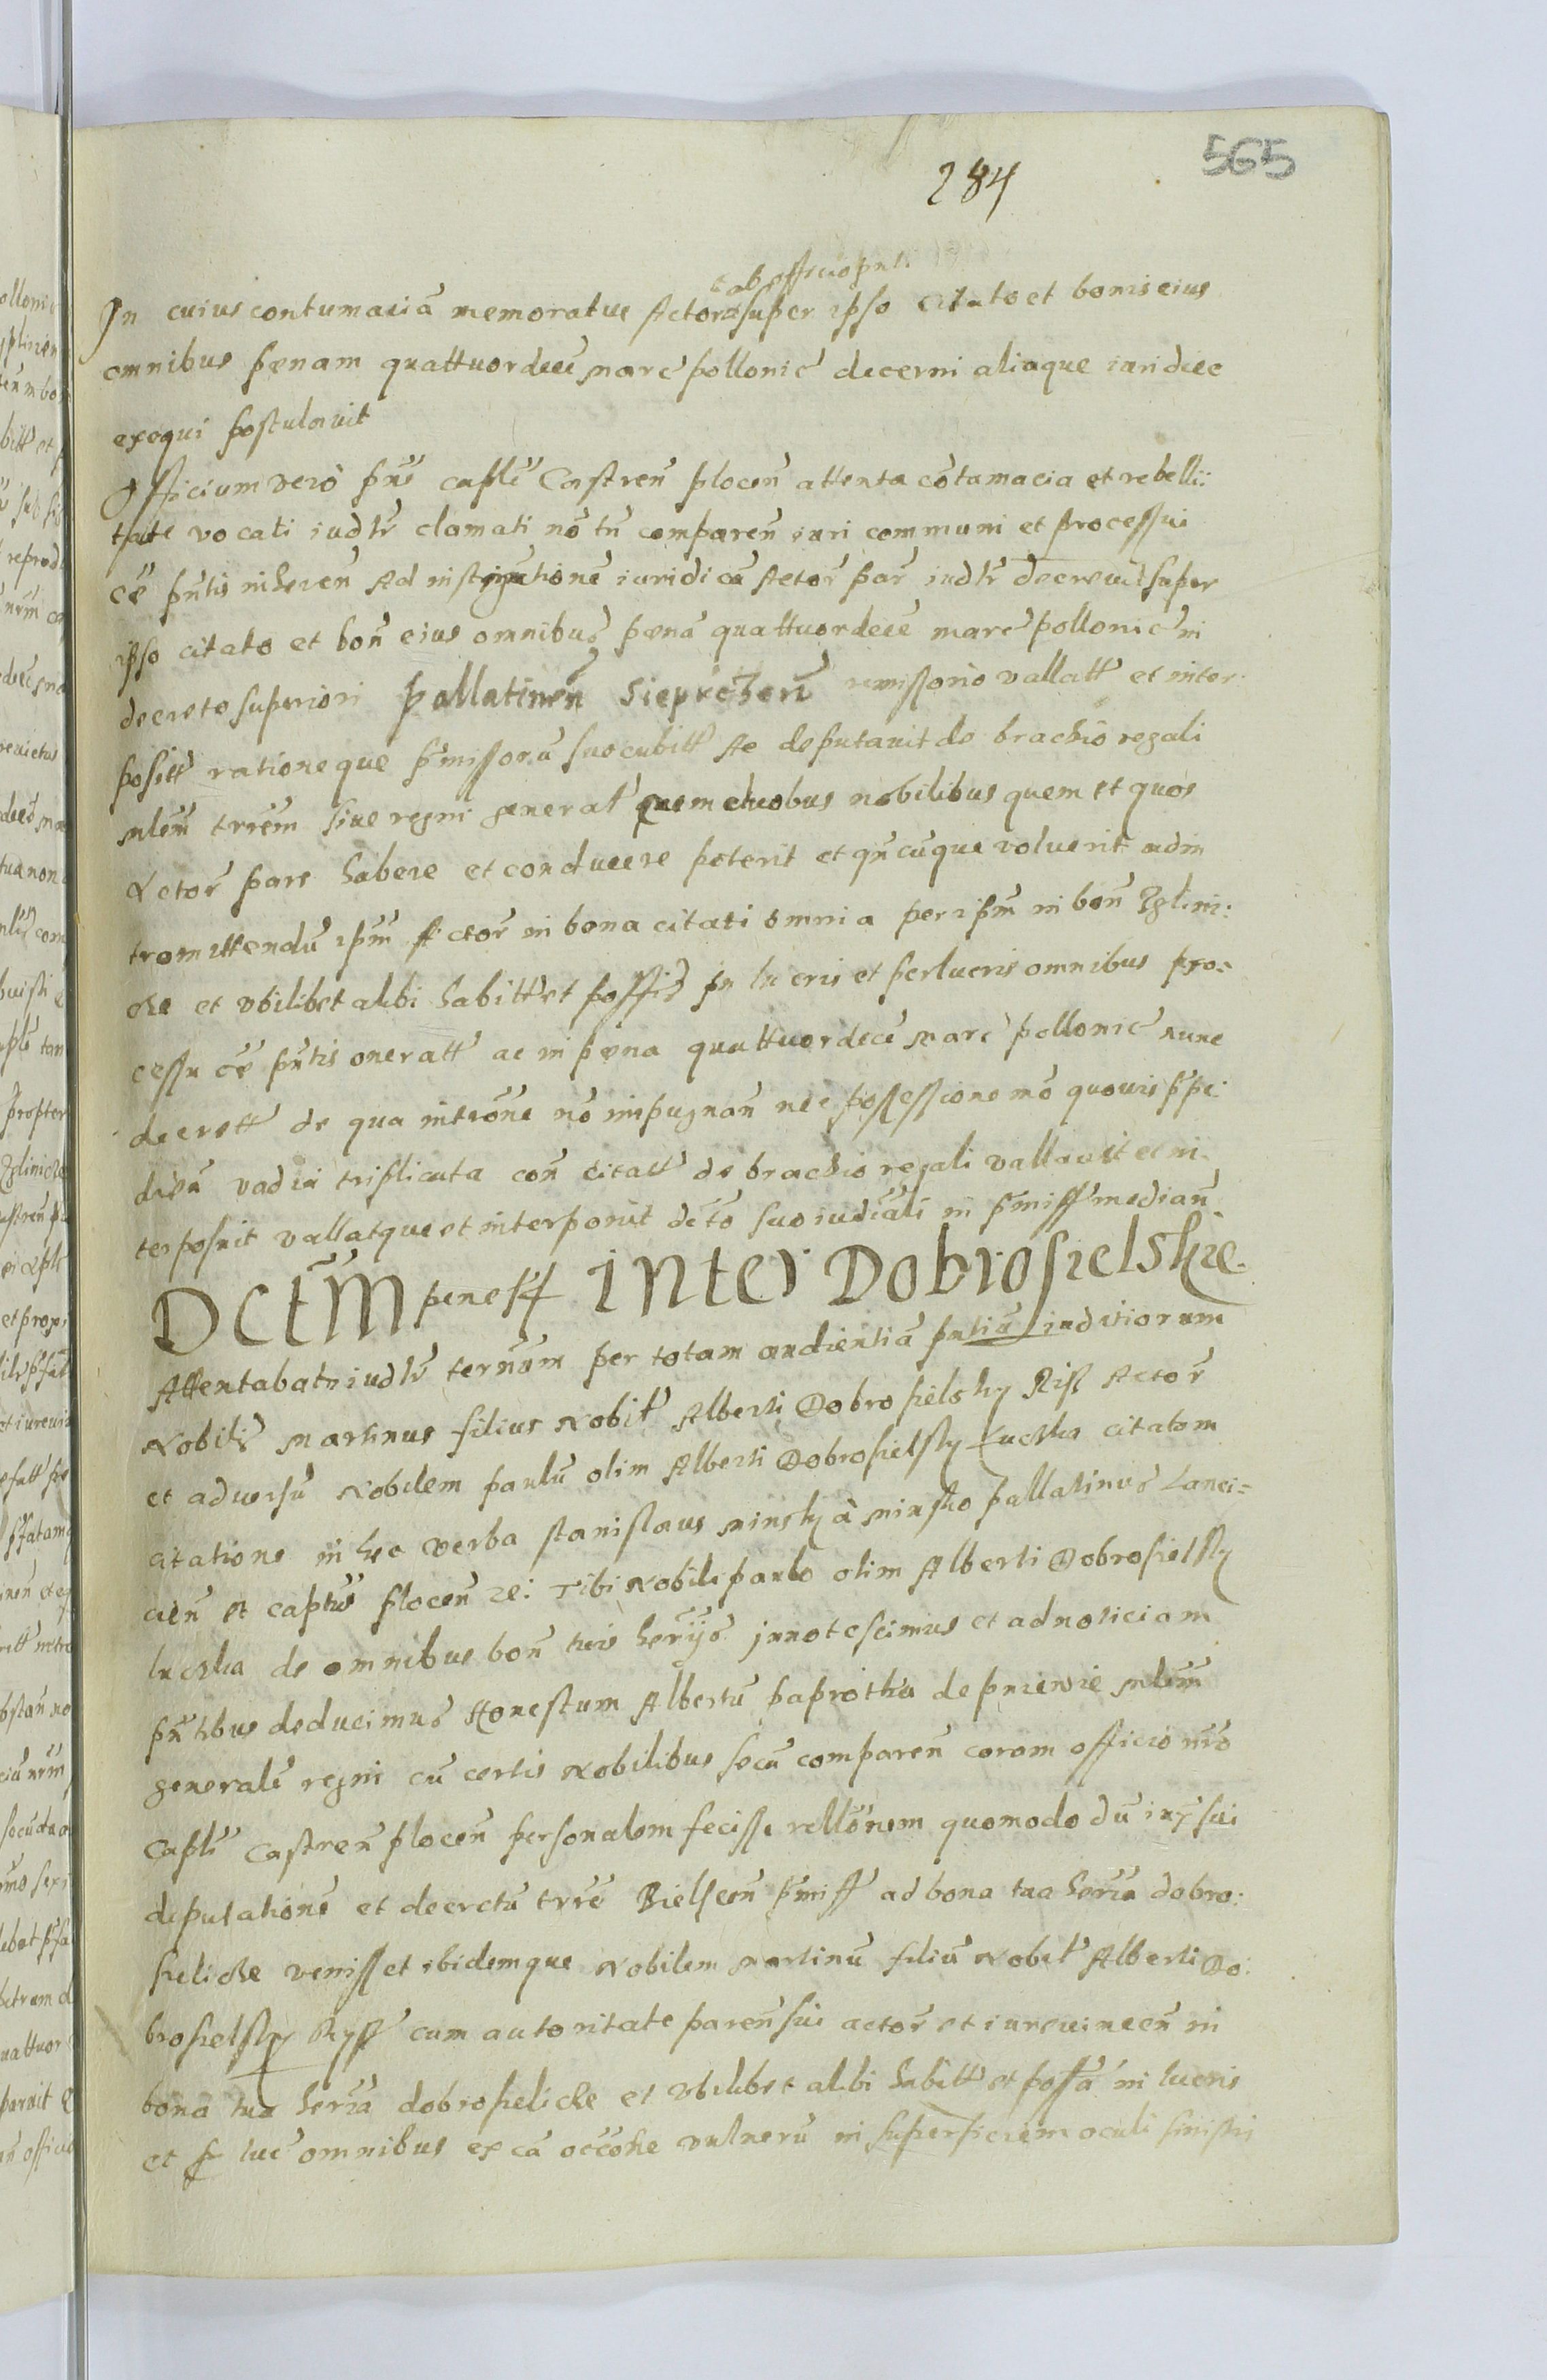 565
284
ab officio pnti
In cuius contumaciā memoratus Actor super ipso citato et bonis eius
omnibus pœnam quattuordecē marc̄ pollonic̄ decerni aliaque iuridice
exequi postulavit
Officium vero pn̄s capłe Castreñ plocen̄ attenta cōtumacia et rebelli:
tate vocati iudłr clamati nō tn̄ comparen̄ iuri communi et processui
cē pn̄tis inheren̄ Ad instigationē iuridicā Actor̄ par̄ iudłr decrevit super
ipso citato et bon̄ eius omnibus pœnā quattuordecē marc̄ pollonic̄ in
decreto superiori pallatinen̄ Siepreżen̄ remissorio vallatt̄ et inter
positt̄ rationeque pr̄missorū succubitt̄ Ac deputavit de brachio regali
mlēm trrēm sive regni general̄ cum duobus nobilibus quem et quos
Actor̄ pars habere et conducere poterit et qn̄cūque voluerit ad in
tromittendū ipm̄ Actor̄ in bona citati omnia per ipm̄ in bon̄ Zglini:
cze et ubilibet alibi habitt̄ et possis in lucris et perlucris omnibus pro=
cessu cē pn̄tis oneratt̄ ac in pœna quattuordecē marc̄ pollonic̄ nunc
decrett̄ de qua intrōne nō impugnan̄ nec possessione mō quovis pr̄pe:
dien̄ vadia triplicata con̄ citatt̄ de brachio regali vallavit et in
terposuit vallatque et interponit dcto suo iudiciāli in pr̄miss̄ median̄
Dctm̄ peness inter Dobrosielskie.
Attentabatr iudłr tern̄um per totam audientiā pn̄tiū iuditiorum
Nobilis Martinus filius Nobil̄ Alberti Dobrosielsky Ris Actor̄
et adversū Nobilem paulū olim Alberti Dobrosielsky Luczka citatom
citatione in hec verba Stanislaus Minsky à Minsko pallatinus Lanci=
cien̄ et captus plocen̄ zc: Tibi Nobili paulo olim Alberti Dobrosielsky
luczka de omnibus bon̄ tuis herijs innotescimus et ad noticiam
pn̄tibus deducimus Honestum Albertū paprotka de pniewie mlēm
generalē regni cū certis Nobilibus secū comparen̄ coram officio nr̄o
Capłi Castren̄ plocen̄ personalem fecisse rellōnem quomodo dū iux̄ sui
deputationē et decretū trrē Bielscen̄ pr̄miss̄ ad bona tua herīa dobro:
sieliche venisset ibidemque Nobilem Martinū filiū Nobil̄ Alberti Do:
brosielsky Ryss cum autoritate paren̄ sui actor̄ et iurevincen̄ in
bona tua herīa dobrosieliche et ubilibet alibi habitt̄ et possā in lucris
et p luc̄ omnibus ex cā occōne vulnerū in superficiem oculi sinistri